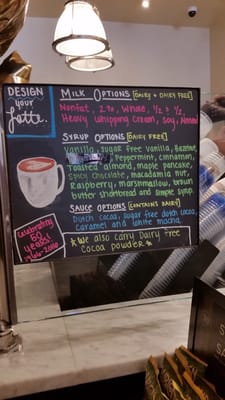 DESIGN
your
Latte.
MILK OPTIONS [DAIRY + DAIRY FREE]
Nonfat, 2%, Whole, 1/2 + 1/2
Heavy Whipping Cream, Soy,
SYRUP OPTIONS [DAIRY FREE]
Vanilla, sugar free vanilla, Hazelnut,
Peppermint, cinnamon,
Toasted almond, maple pancake,
Spicy chocolate, macadamia nut,
Raspberry, marshmallow, brown
butter shortbread and simple syrup.
SAUCE OPTIONS [CONTAINS DAIRY]
Dutch cocoa, sugar free dutch cocoa,
Caramel and white mocha.
We also carry Dairy Free
Cocoa powder
Celebrating
50
years!
1966-2016